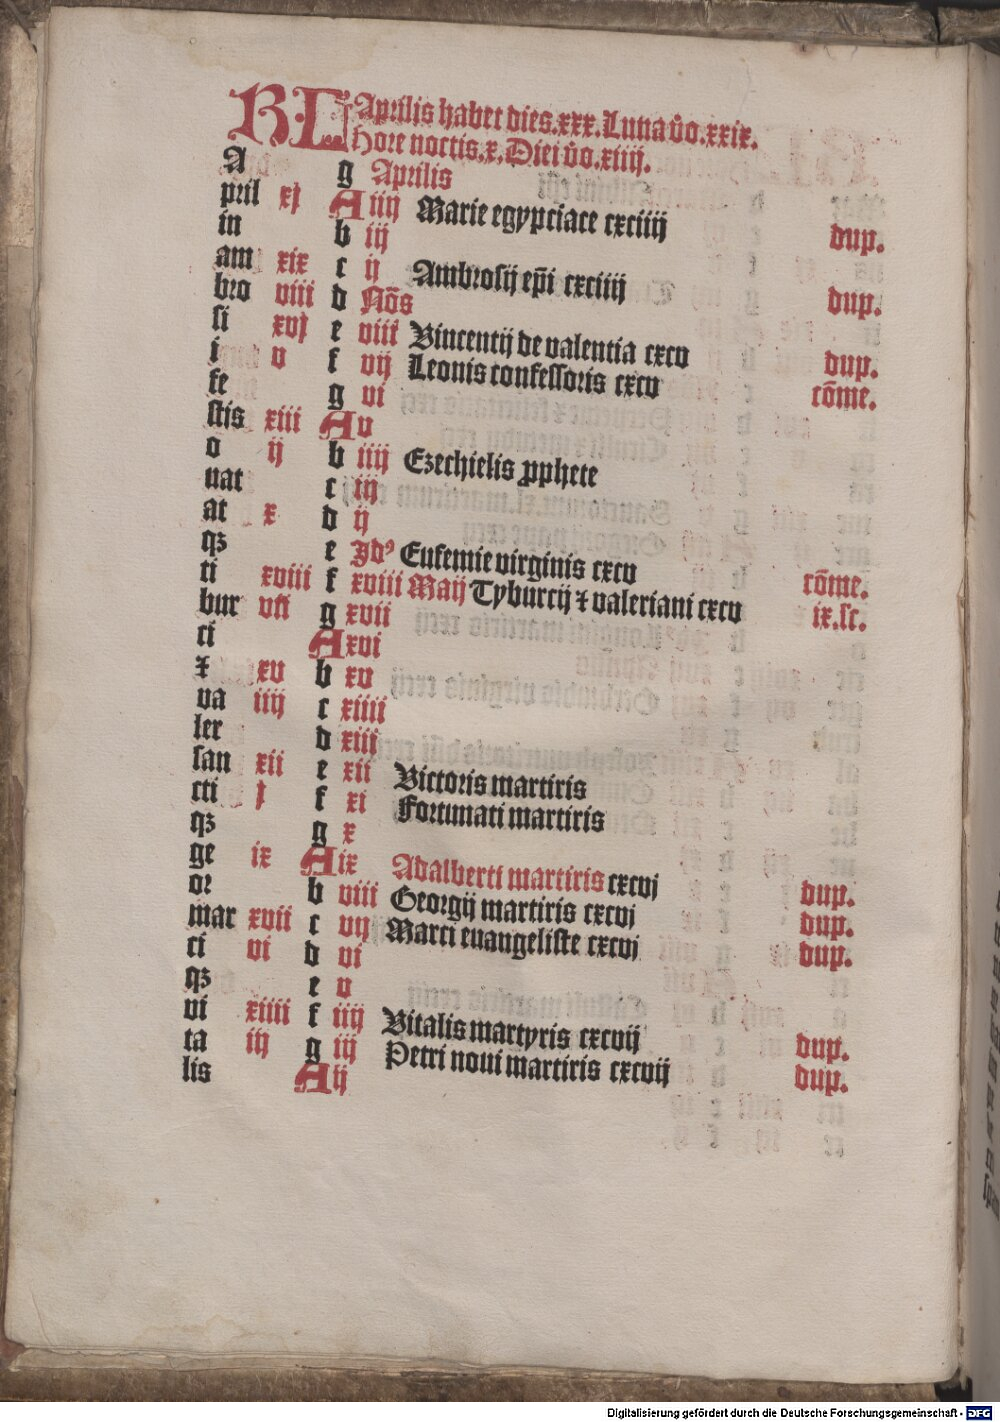 KL Aprilis habet dies.xxx.Luna v̄o.xxix.
Hore noctis.x.Diei v̄o.xiiij.
A g Aprilis
pril xj A iiij Marie egyptiace cxciiij dup.
in b iij
am xix c ij Ambrosij ep̄i cxciiij dup.
bro viii d Nōs
si xvj e viii Vincentij de valentia cxcv dup.
i v f vij Leonis confessoris cxcv cōme.
fe g vi
stis xiii A v
o ij b iiij Ezechielis ꝓphete
nat c iij
at x d ij
qꝫ e Idꝰ Eufemie virginis cxcv cōme.
ti xviii f xviii Maij Tyburcij ⁊ valeriani cxcv ix.lc.
bur vii g xvii
ci A xvi
⁊ xv b xv
va iiij c xiiii
ler d xiij
san xii e xii Victoris martiris
cti j f xi Fortunati martiris
qꝫ g x
ge ix A ix Adalberti martiris cxcvj dup.
or b viii Georgij martiris cxcvj dup.
mar xvii c vij Marci euangeliste cxcvj dup.
ci vi d vi
qꝫ e v
vi xiiii f iiij Vitalis martyris cxcvij dup.
ta iij g iij Petri noui martiris cxcvij dup.
lis A ij
Digitalisierung gefördert durch die Deutsche Forschungsgemeinschaft - DFG